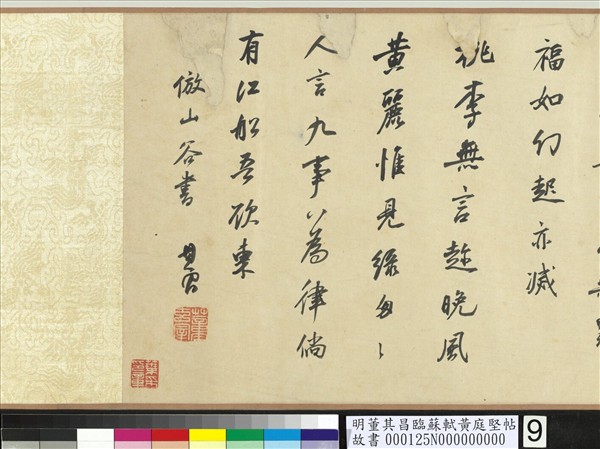 福如幻起亦滅
桃李無言趁晚風
黃麗惟見綠匆〻
人言九事八為律倘
有江船吾欲東
倣山谷書 其昌
明董其昌臨蘇軾黃庭堅帖
故書 000125N000000000
9